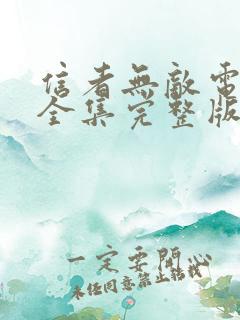 信者無敵電
全集完整版
一定要開心
未经同意禁止搭讪